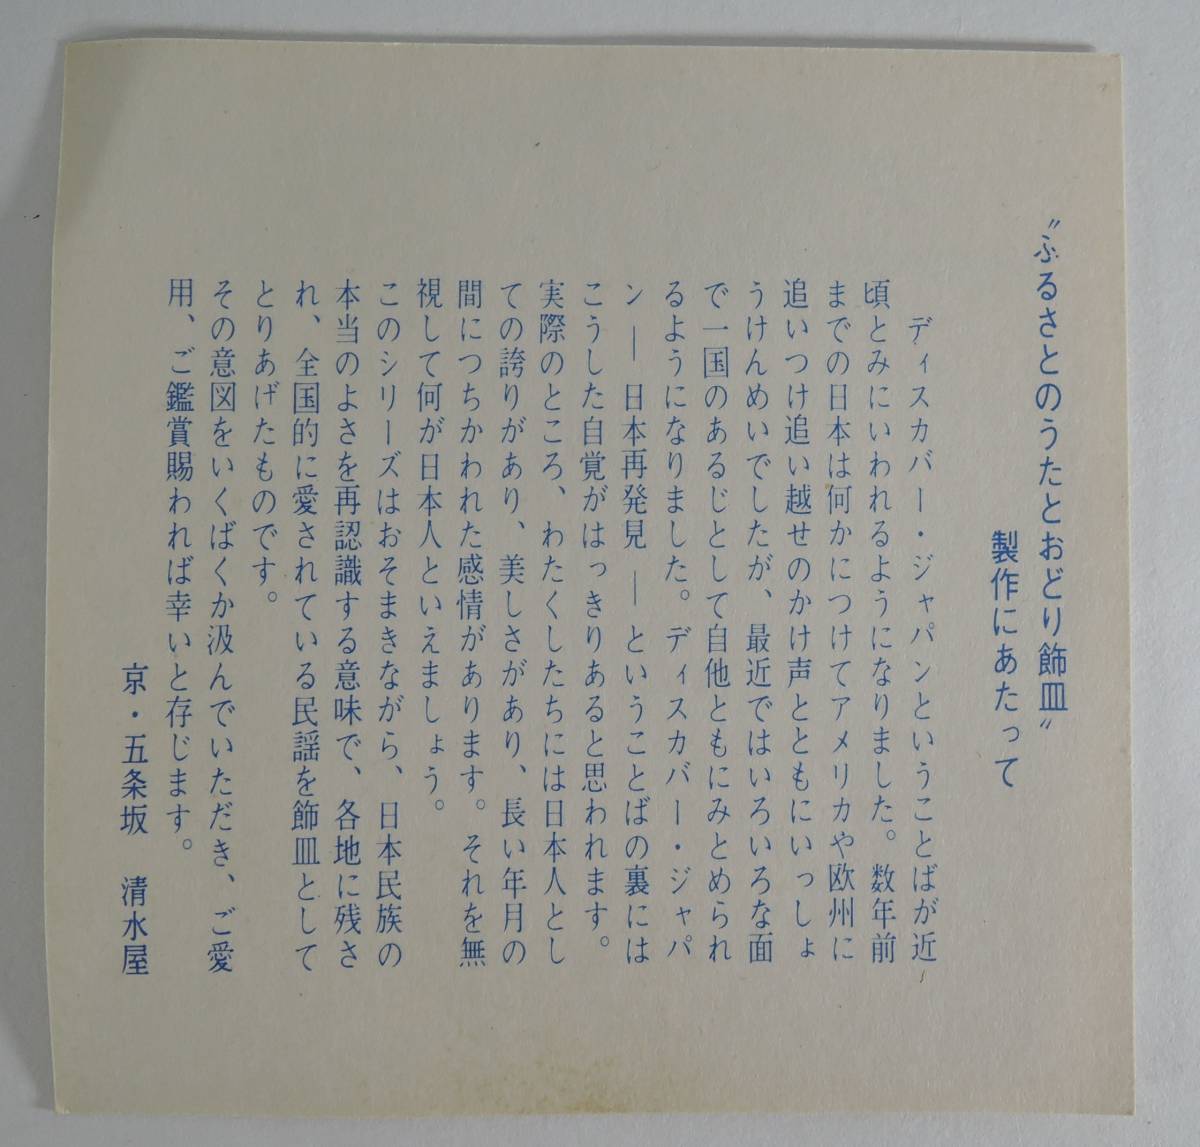 〝ふるさとのうたとおどり飾皿〟
製作にあたって
ディスカバー・ジャパンということばが近
頃とみにいわれるようになりました。数年前
までの日本は何かにつけてアメリカや欧州に
追いつけ追い越せのかけ声とともにいっしょ
うけんめいでしたが、最近ではいろいろな面
で一国のあるじとして自他ともにみとめられ
るようになりました。ディスカバー・ジャパ
ン ― 日本再発見 ― ということばの裏には
こうした自覚がはっきりあると思われます。
実際のところ、わたくしたちには日本人とし
ての誇りがあり、美しさがあり、長い年月の
間につちかわれた感情があります。それを無
視して何が日本人といえましょう。
このシリーズはおそまきながら、日本民族の
本当のよさを再認識する意味で、各地に残さ
れ、全国的に愛されている民謡を飾皿として
とりあげたものです。
その意図をいくばくか汲んでいただき、ご愛
用、ご鑑賞賜われば幸いと存じます。
京・五条坂 清水屋